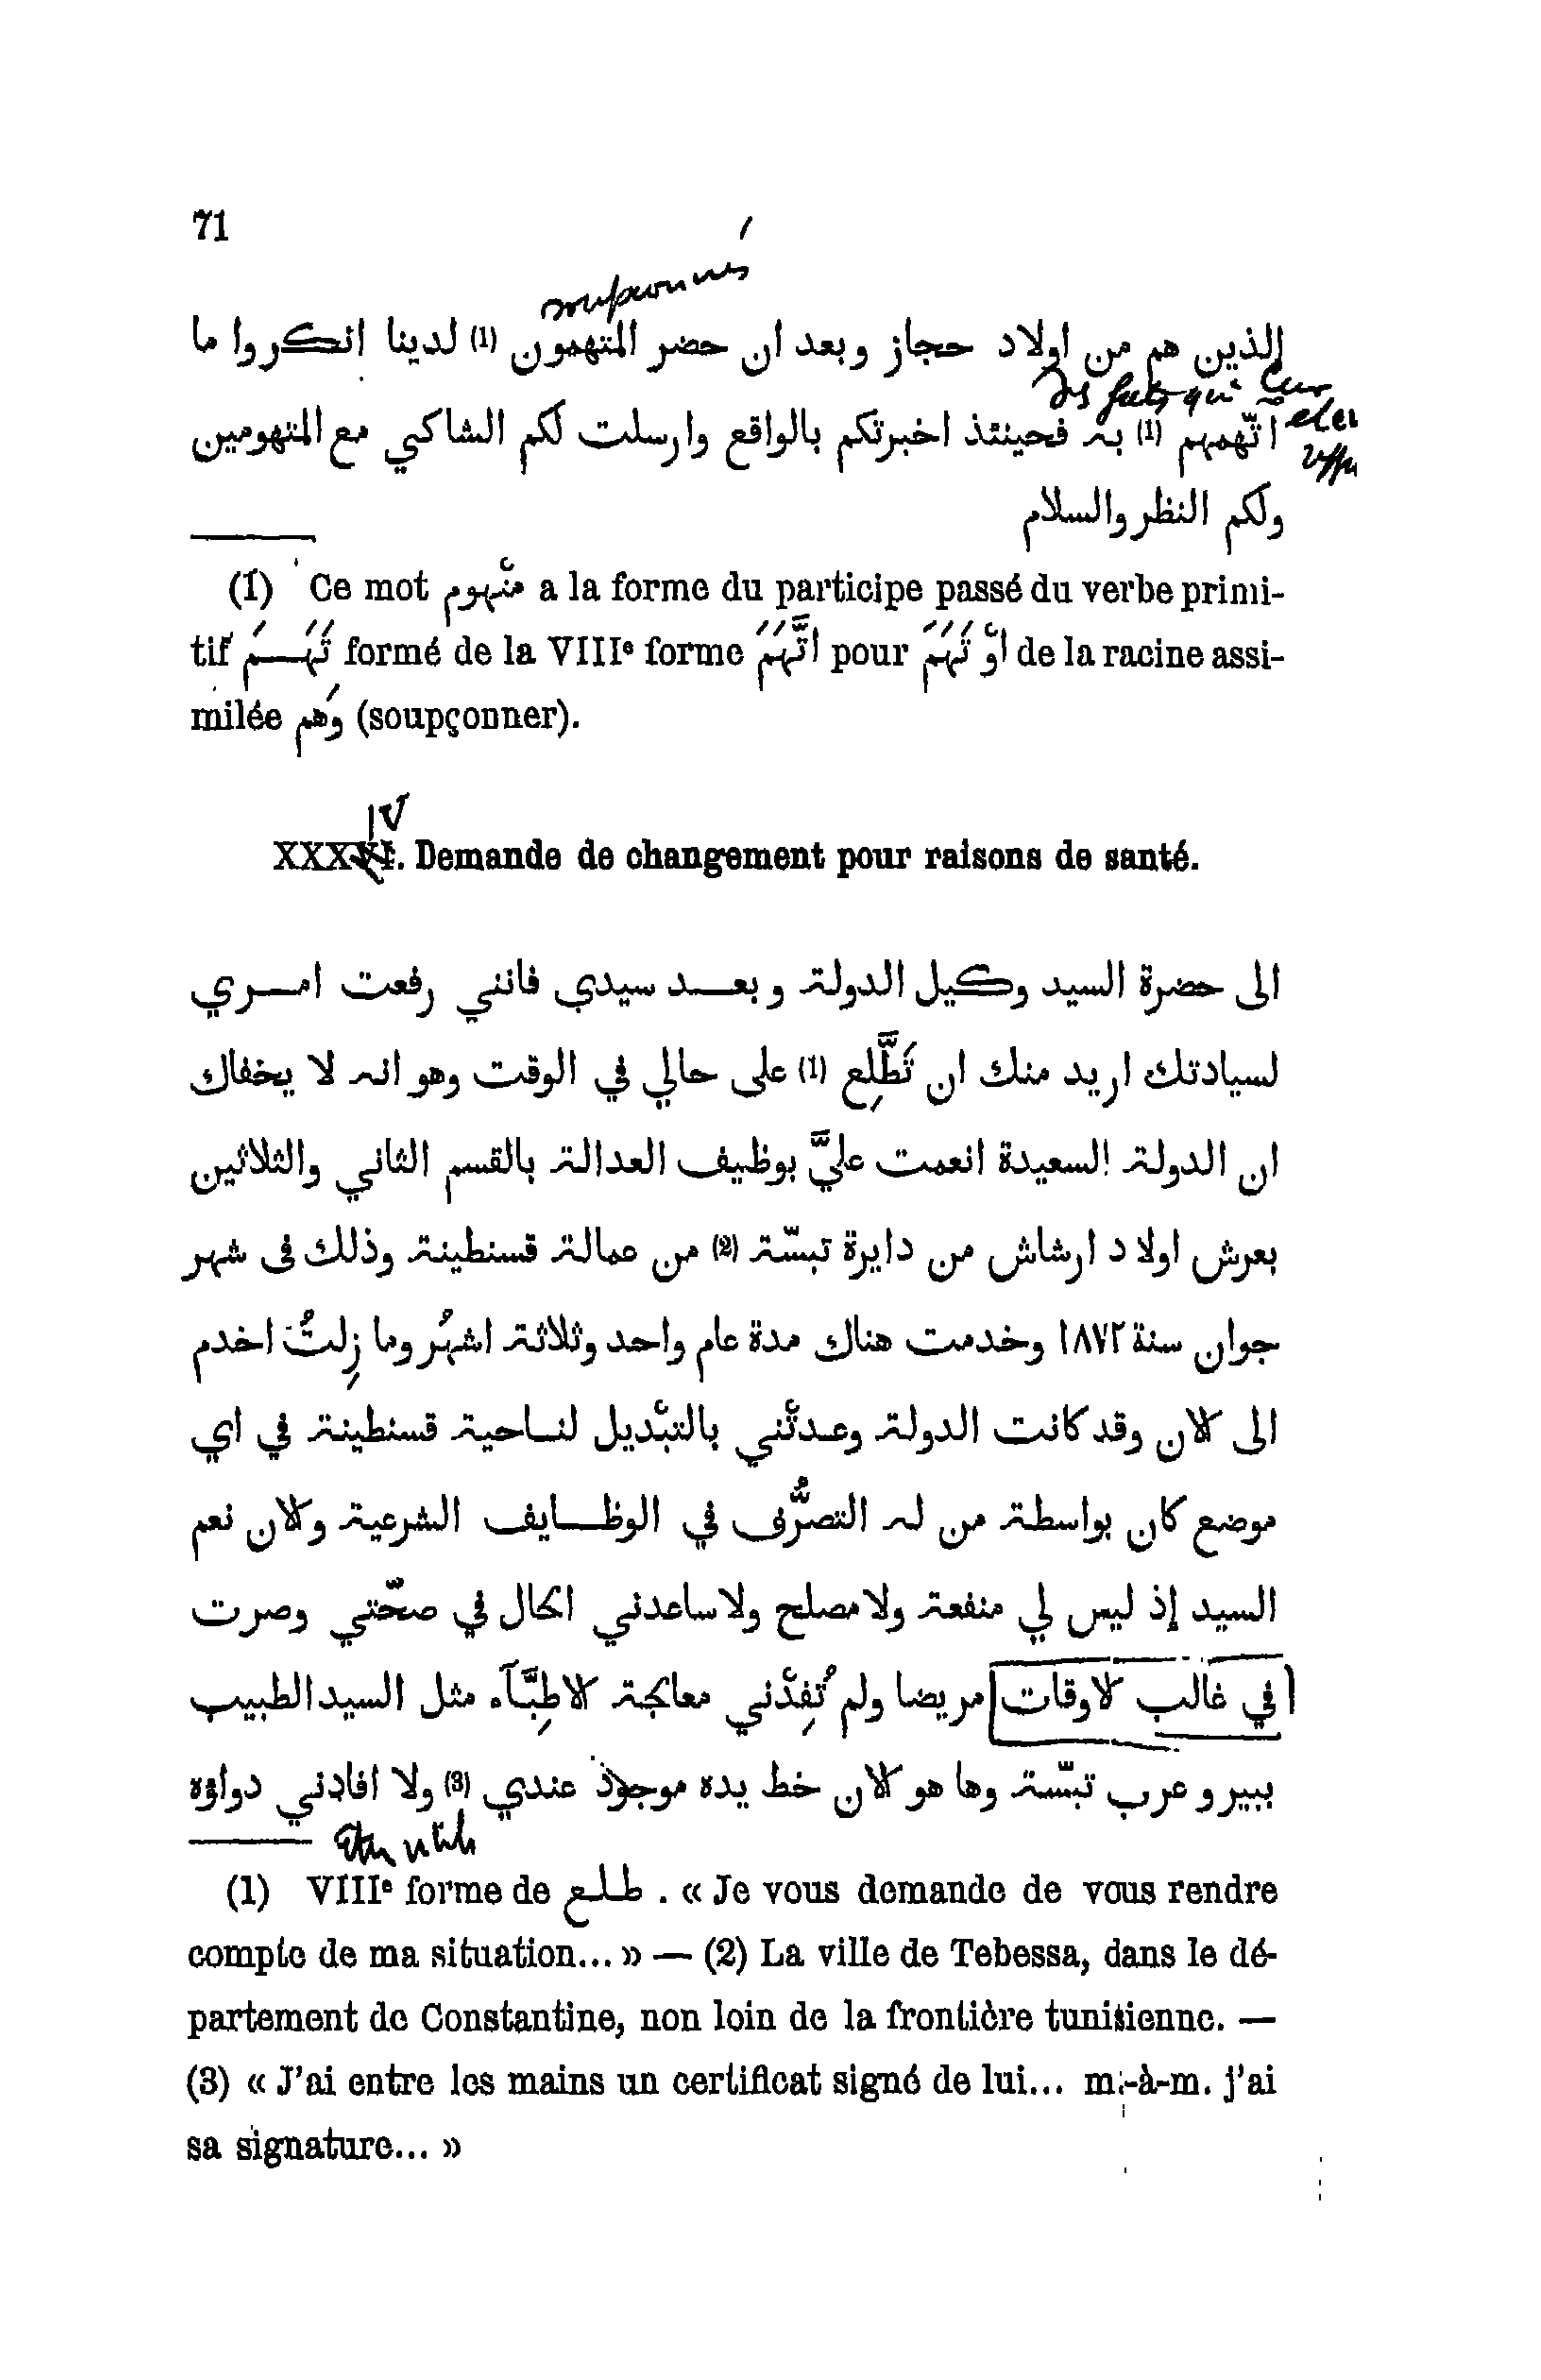 71
soupçonnés
الذين هم من اولاد حجاز وبعد ان حضر المتهمون (1) لدينا انكروا ما
Des faits qui
اتّهمهم (1) به فحينئذ اخبرتكم بالواقع وارسلت لكم الشاكي مع المتهومين
ولكم النظر والسلام
(1) Ce mot متْهوم a la forme du participe passé du verbe primi-
tif تَهَـــمَ formé de la VIIIᵉ forme اتَّهَمَ pour اوْتَهَمَ de la racine assi-
milée وَهم (soupçonner).
IV
XXXVI. Demande de changement pour raisons de santé.
الى حضرة السيد وكيل الدولة وبعــد سيدي فانني رفعت امــري
لسيادتك اريد منك ان تَطَّلِع (1) على حالي في الوقت وهو انه لا يخفاك
ان الدولة السعيدة انعمت عليَّ بوظيف العدالة بالقسم الثاني والثلاثين
بعرش اولاد ارشاش من دايرة تبسّة (2) من عمالة قسنطينة وذلك فى شهر
جوان سنة ١٨٧٢ وخدمت هناك مدة عام واحد وثلاثة اشهُر وما زِلتُ اخدم
الى الان وقد كانت الدولة وعدتْني بالتبْديل لنـاحية قسنطينة في اي
موضع كان بواسطة من له التصرُّف في الوظــايف الشرعية والان نعم
السيد إذ ليس لي منفعة ولا مصلح ولا ساعدني الحال في صحّتي وصرت
في غالب الاوقات مريضا ولم تُفِدْني معالجة الاطِبَّآء مثل السيد الطبيب
ببير و عرب تبسّة وها هو الان خط يده موجود عندي (3) ولا افادني دواؤه
Etre utile
(1) VIIIᵉ forme de طلع . « Je vous demande de vous rendre
compte de ma situation... » — (2) La ville de Tebessa, dans le dé-
partement de Constantine, non loin de la frontière tunisienne. —
(3) « J'ai entre les mains un certificat signé de lui... m.-à-m. j'ai
sa signature... »